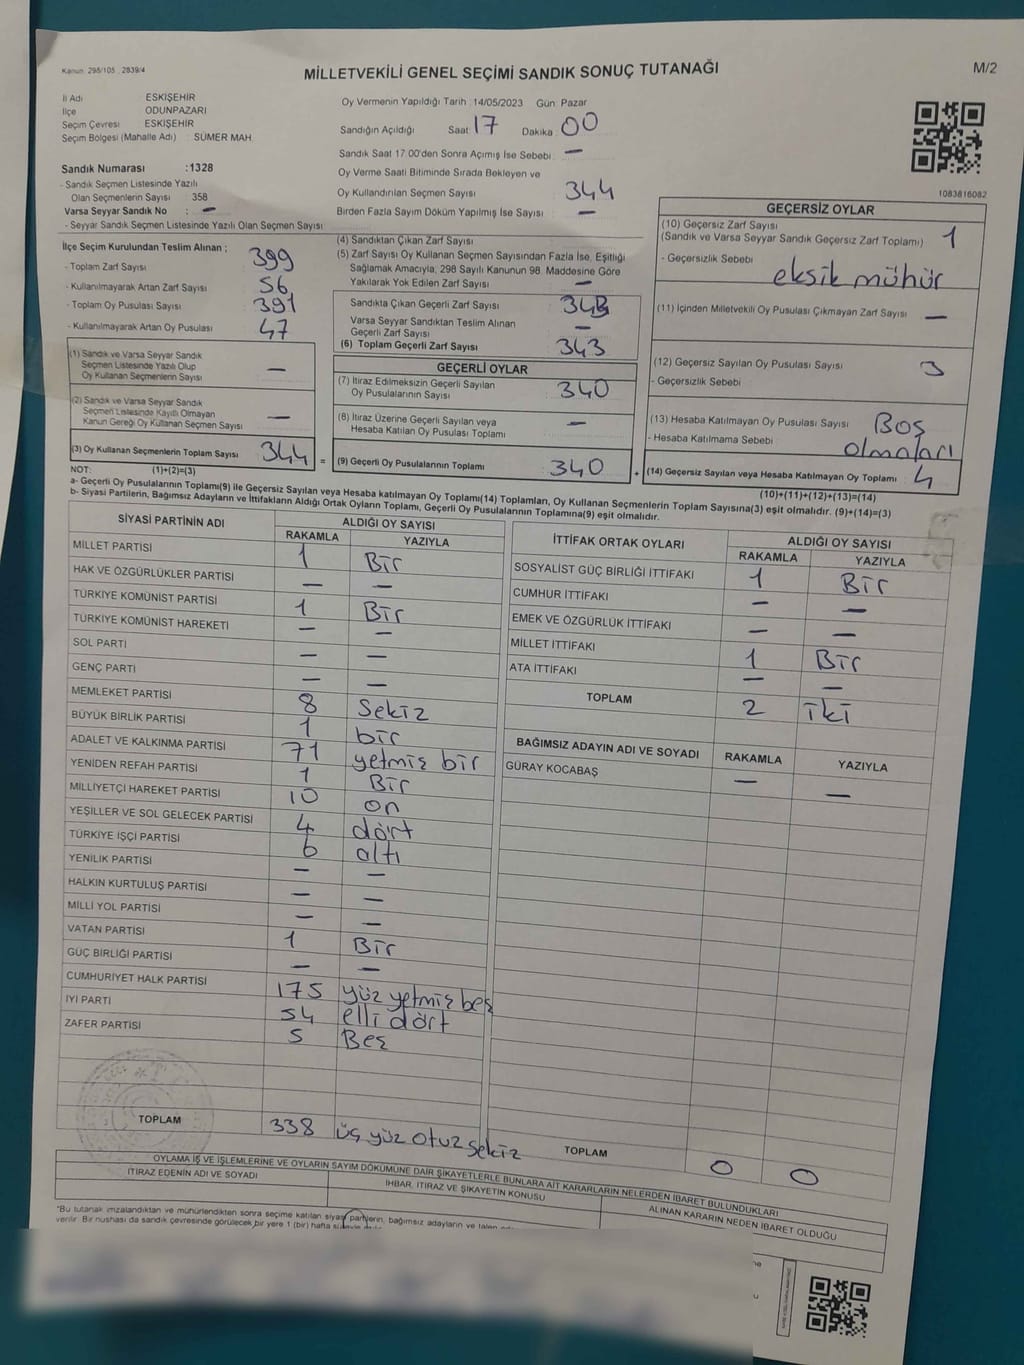 Kanun 298/105 2839/4
MİLLETVEKİLİ GENEL SEÇİMİ SANDIK SONUÇ TUTANAĞI
M/2
İl Adı ESKİŞEHİR
İlçe ODUNPAZARI
Seçim Çevresi ESKİŞEHİR
Seçim Bölgesi (Mahalle Adı) : SÜMER MAH.
Sandık Numarası :1328
- Sandık Seçmen Listesinde Yazılı
Olan Seçmenlerin Sayısı : 358
Varsa Seyyar Sandık No : —
- Seyyar Sandık Seçmen Listesinde Yazılı Olan Seçmen Sayısı
Oy Vermenin Yapıldığı Tarih : 14/05/2023 Gün: Pazar
Sandığın Açıldığı Saat: 17 Dakika : 00
Sandık Saat 17.00'den Sonra Açılmış İse Sebebi : —
Oy Verme Saati Bitiminde Sırada Bekleyen ve
Oy Kullandırılan Seçmen Sayısı : 344
Birden Fazla Sayım Döküm Yapılmış İse Sayısı : —
1083816082
İlçe Seçim Kurulundan Teslim Alınan ;
- Toplam Zarf Sayısı : 399
- Kullanılmayarak Artan Zarf Sayısı : 56
- Toplam Oy Pusulası Sayısı : 391
- Kullanılmayarak Artan Oy Pusulası : 47
(1) Sandık ve Varsa Seyyar Sandık
Seçmen Listesinde Yazılı Olup
Oy Kullanan Seçmenlerin Sayısı : —
(2) Sandık ve Varsa Seyyar Sandık
Seçmen Listesinde Kayıtlı Olmayan
Kanun Gereği Oy Kullanan Seçmen Sayısı : —
(3) Oy Kullanan Seçmenlerin Toplam Sayısı : 344 =
(1)+(2)=(3)
(4) Sandıktan Çıkan Zarf Sayısı :
(5) Zarf Sayısı Oy Kullanan Seçmen Sayısından Fazla İse, Eşitliği
Sağlamak Amacıyla, 298 Sayılı Kanunun 98. Maddesine Göre
Yakılarak Yok Edilen Zarf Sayısı : —
Sandıkta Çıkan Geçerli Zarf Sayısı : 343
Varsa Seyyar Sandıktan Teslim Alınan
Geçerli Zarf Sayısı : —
(6) Toplam Geçerli Zarf Sayısı : 343
GEÇERLİ OYLAR
(7) İtiraz Edilmeksizin Geçerli Sayılan
Oy Pusulalarının Sayısı : 340
(8) İtiraz Üzerine Geçerli Sayılan veya
Hesaba Katılan Oy Pusulası Toplamı : —
(9) Geçerli Oy Pusulalarının Toplamı : 340 +
GEÇERSİZ OYLAR
(10) Geçersiz Zarf Sayısı
(Sandık ve Varsa Seyyar Sandık Geçersiz Zarf Toplamı) : 1
- Geçersizlik Sebebi : eksik mühür
(11) İçinden Milletvekili Oy Pusulası Çıkmayan Zarf Sayısı : —
(12) Geçersiz Sayılan Oy Pusulası Sayısı : 3
- Geçersizlik Sebebi
(13) Hesaba Katılmayan Oy Pusulası Sayısı : Boş
- Hesaba Katılmama Sebebi : olmaları
(14) Geçersiz Sayılan veya Hesaba Katılmayan Oy Toplamı : 4
(10)+(11)+(12)+(13)=(14)
NOT:
a- Geçerli Oy Pusulalarının Toplamı(9) ile Geçersiz Sayılan veya Hesaba katılmayan Oy Toplamı(14) Toplamları, Oy Kullanan Seçmenlerin Toplam Sayısına(3) eşit olmalıdır. (9)+(14)=(3)
b- Siyasi Partilerin, Bağımsız Adayların ve İttifakların Aldığı Ortak Oyların Toplamı, Geçerli Oy Pusulalarının Toplamına(9) eşit olmalıdır.
SİYASİ PARTİNİN ADI ALDIĞI OY SAYISI
RAKAMLA YAZIYLA
MİLLET PARTİSİ 1 Bir
HAK VE ÖZGÜRLÜKLER PARTİSİ — —
TÜRKİYE KOMÜNİST PARTİSİ 1 Bir
TÜRKİYE KOMÜNİST HAREKETİ — —
SOL PARTİ — —
GENÇ PARTİ — —
MEMLEKET PARTİSİ 8 Sekiz
BÜYÜK BİRLİK PARTİSİ 1 bir
ADALET VE KALKINMA PARTİSİ 71 yetmiş bir
YENİDEN REFAH PARTİSİ 1 Bir
MİLLİYETÇİ HAREKET PARTİSİ 10 on
YEŞİLLER VE SOL GELECEK PARTİSİ 4 dört
TÜRKİYE İŞÇİ PARTİSİ 6 altı
YENİLİK PARTİSİ — —
HALKIN KURTULUŞ PARTİSİ — —
MİLLİ YOL PARTİSİ — —
VATAN PARTİSİ 1 Bir
GÜÇ BİRLİĞİ PARTİSİ — —
CUMHURİYET HALK PARTİSİ 175 yüz yetmiş beş
İYİ PARTİ 54 elli dört
ZAFER PARTİSİ 5 Beş
TOPLAM 338 üç yüz otuz sekiz
İTTİFAK ORTAK OYLARI ALDIĞI OY SAYISI
RAKAMLA YAZIYLA
SOSYALİST GÜÇ BİRLİĞİ İTTİFAKI 1 Bir
CUMHUR İTTİFAKI — —
EMEK VE ÖZGÜRLÜK İTTİFAKI — —
MİLLET İTTİFAKI 1 Bir
ATA İTTİFAKI — —
TOPLAM 2 iki
BAĞIMSIZ ADAYIN ADI VE SOYADI RAKAMLA YAZIYLA
GÜRAY KOCABAŞ — —
TOPLAM 0 0
OYLAMA İŞ VE İŞLEMLERİNE VE OYLARIN SAYIM DÖKÜMÜNE DAİR ŞİKAYETLERLE BUNLARA AİT KARARLARIN NELERDEN İBARET BULUNDUKLARI
İTİRAZ EDENİN ADI VE SOYADI İHBAR, İTİRAZ VE ŞİKAYETİN KONUSU ALINAN KARARIN NEDEN İBARET OLDUĞU
"Bu tutanak imzalandıktan ve mühürlendikten sonra seçime katılan siyasi partilerin, bağımsız adayların ve talep
verilir. Bir nushası da sandık çevresinde görülecek bir yere 1 (bir) hafta